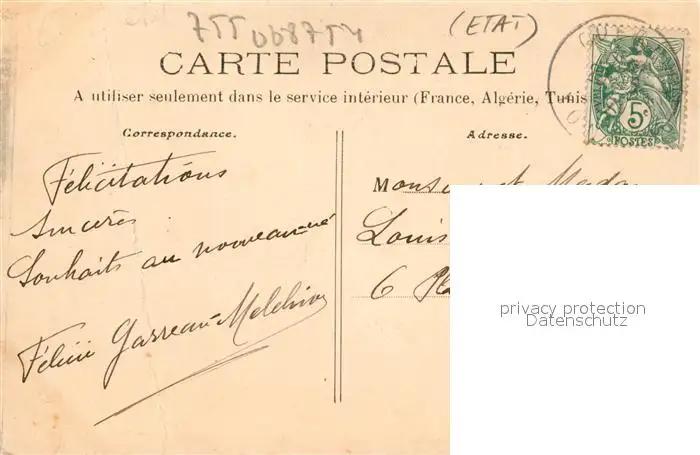 755 008754
(ETAT)
CARTE POSTALE
A utiliser seulement dans le service intérieur (France, Algérie, Tunis
5c
POSTES
Correspondance.
Adresse.
Félicitations
sincères
Souhaits au nouveau-né
Félicie Garreau-Melchior
Monsieur et Mada
Louis
6 Pla
privacy protection
Datenschutz